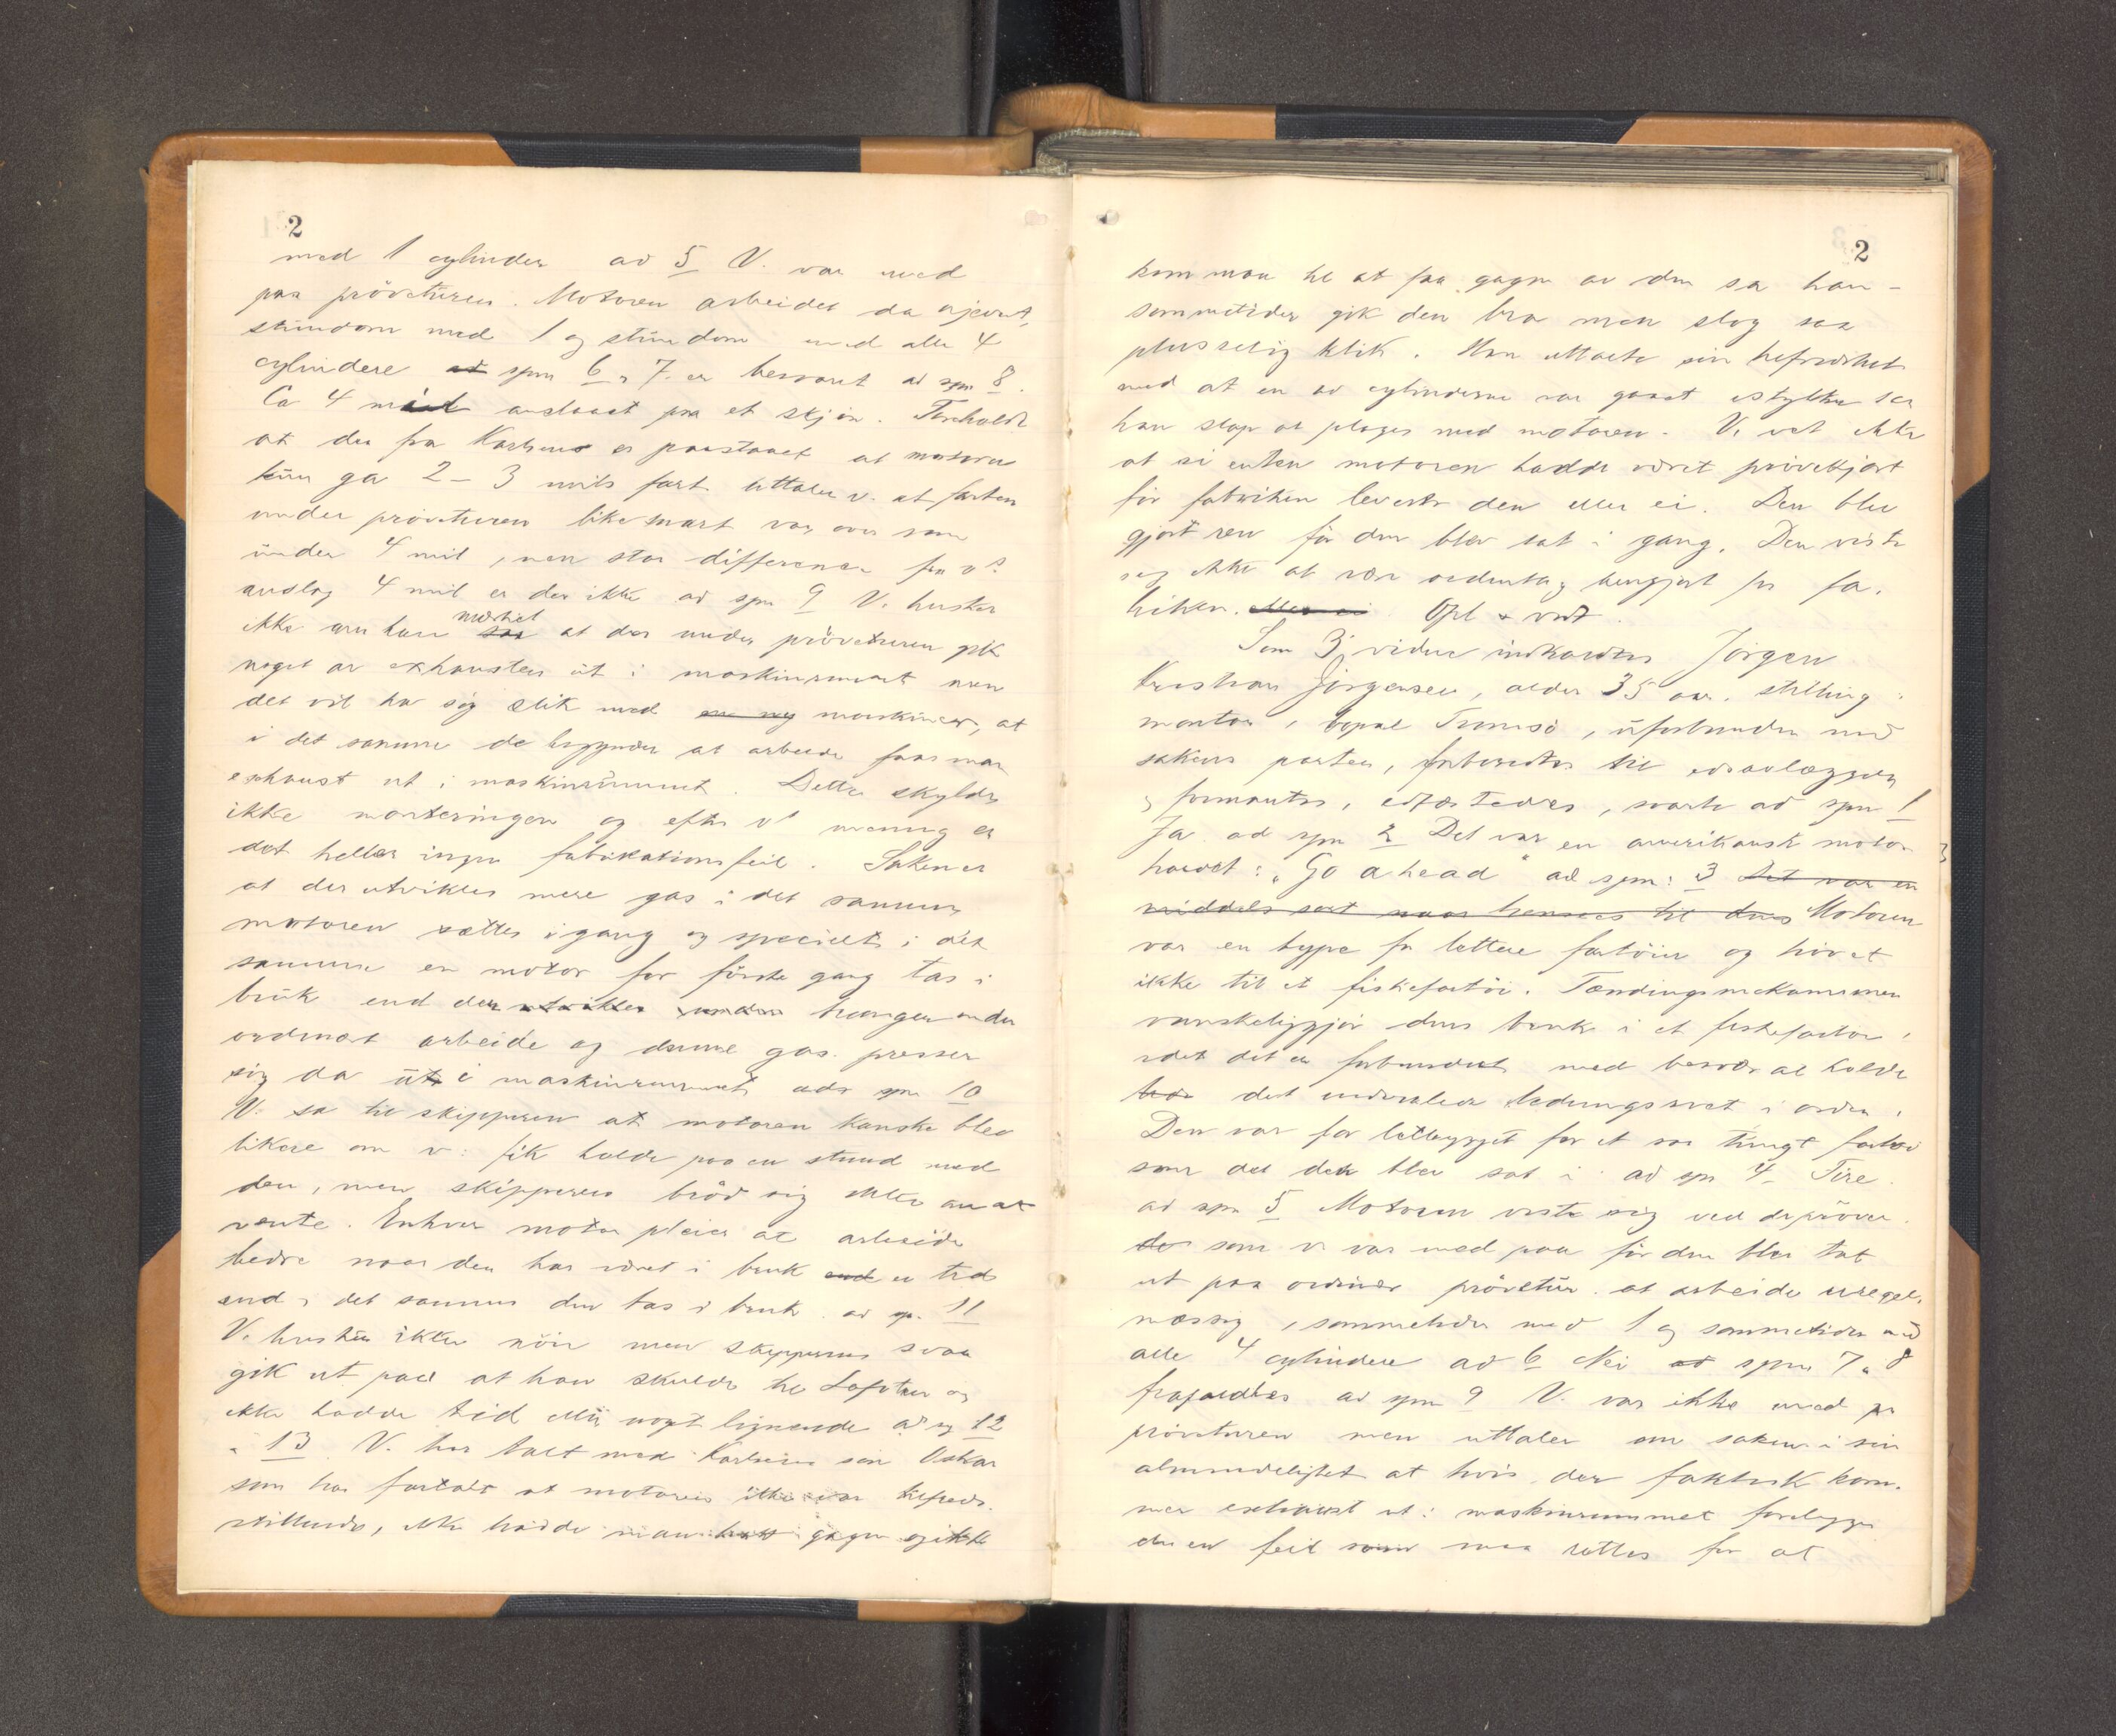 2
med 1 cylinder ad 5 V. var med
paa prövetüren. Motoren arbeidet da ujevnt,
stündom med 1 og stündom med alle 4
cylindere ad spm 6 " 7. er besvart ad spm 8.
Ca 4 mil anslaaet paa et skjön. Foreholdt
at der fra Karlsens er paastaaet at motoren
kün ga 2 - 3 mils fart uttaler v. at farten
under prövetüren likesnart var over som
ünder 4 mil, nen stor differense fra vs
anslag 4 mil er der ikke ad spm 9 V. husker
ikke om han saa merket at der under prövetüren gik
noget av exhausten üt i maskinrummet men
det vil ha sig slik med en ny maskiner, at
i det samme de begynder at arbeide faar man
exhaust ut i maskinrümmet. Dette skyldes
ikke monteringen og efter vs mening er
det heller ingen fabrikationsfeil. Saken er
at der utvikles mere gas i det samme
motoren sættes igang og specielt i det
samme en motor for förste gang tas i
brük end der utvikles under trænges under
ordinært arbeide og denne gas presser
sig da üt i maskinrummet ad spm 10
V. sa til skipperen at motoren kanske blev
likere om v. fik holde paa en stund med
den, men skipperen bröd sig ikke om at
vente. Enhver motor pleier at arbeide
bedre naar den har været i bruk end en tid
end i det samme den tas i bruk. ad sp. 11
V. husker ikke nöie men skipperens svar
gik ut paa at han skulde til Lofoten og
ikke hadde tid eller noget lignende ad sp 12
" 13 V. har talt med Karlsens sön Oskar
som har fortalt at motoren ikke var tilfreds-
stillende, ikke hadde man hat gagn og ikke
2
kom man til at faa gagn av den sa han -
sommetider gik den bra men slog saa
plutselig klik. Han uttalte sin tilfredshet
med at en av cylinderne var gaaet istykker saa
han slap at plages med motoren. V. vet ikke
at si enten motoren hadde været prövekjört
för fabriken leverte den eller ei. Den blev
gjort ren för den blev sat i gang. Den viste
sig ikke at være ordentlig rengjort fra fa-
briken. eller ei Opl & vedt.
Som 3 vidne indkaldtes Jörgen
Kristian Jörgensen, alder 35 aar, stilling
montör, bopæl Tromsö, üforbunden med
sakens parter, forberedtes til edsavlæggelse
og formantes, edfæstedes, svarte ad spm 1
Ja ad spm 2 Det var en amerikansk motor
hævet: „Go ahead" ad spm: 3 Det var en
middels sort naar henses til dens Motoren
var en type for lettere fartöier og hövet
ikke til et fiskefartöi. Tændingsmekanismen
vanskeliggjör dens bruk i et fiskefartöi,
idet det er forbundet med besvær at holde
hos det indviklede ledningsnet i orden.
Den var for letbygget for et saa tüngt fartöi
som det den blev sat i ad spm 4 Fire
ad spm 5 Motoren viste sig ved de pröver
de som v. var med paa för den blev tat
ut paa ordinær prövetür at arbeide uregel-
mæssig, sommetider med 1 og sommetider med
alle 4 cylindere ad 6 Nei ad spm 7 " 8
frafaldtes ad spm 9 V. var ikke med paa
prövetüren men uttaler om saken i sin
almindelighet at hvis der faktisk kom-
mer exhaust ut i maskinrummet foreligger
der en feil som maa rettes for at